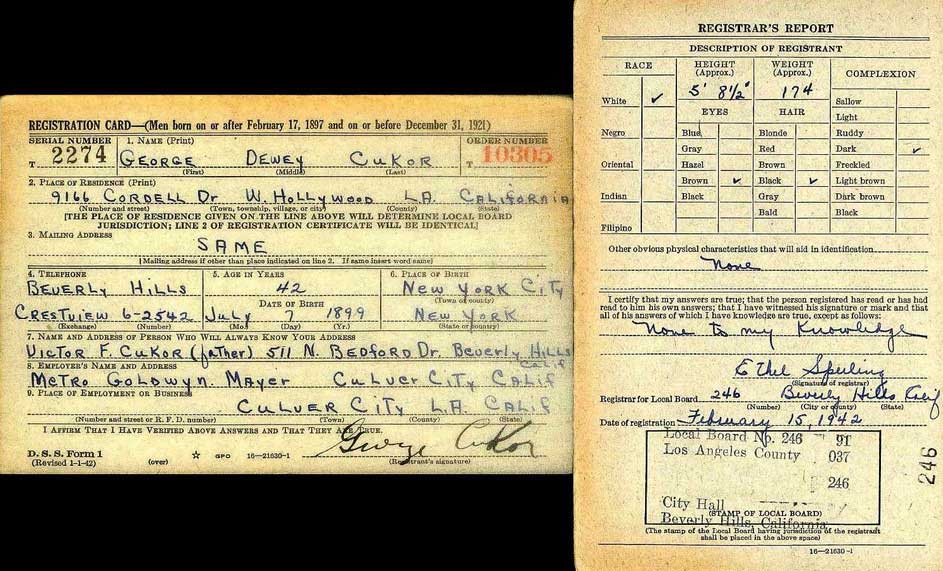 REGISTRATION CARD—(Men born on or after February 17, 1897 and on or before December 31, 1921)
SERIAL NUMBER 1. NAME (Print) ORDER NUMBER
T 2274 GEORGE DEWEY CUKOR T 10305
(First) (Middle) (Last)
2. PLACE OF RESIDENCE (Print)
9166 CORDELL Dr W. HOLLYWOOD L.A. CALIFORNIA
(Number and street) (Town, township, village, or city) (County) (State)
[THE PLACE OF RESIDENCE GIVEN ON THE LINE ABOVE WILL DETERMINE LOCAL BOARD
JURISDICTION; LINE 2 OF REGISTRATION CERTIFICATE WILL BE IDENTICAL]
3. MAILING ADDRESS
SAME
[Mailing address if other than place indicated on line 2. If same insert word same]
4. TELEPHONE 5. AGE IN YEARS 6. PLACE OF BIRTH
BEVERLY HILLS 42 NEW YORK CITY
DATE OF BIRTH (Town or county)
CRESTVIEW 6-2542 JULY 7 1899 NEW YORK
(Exchange) (Number) (Mo.) (Day) (Yr.) (State or country)
7. NAME AND ADDRESS OF PERSON WHO WILL ALWAYS KNOW YOUR ADDRESS
VICTOR F. CUKOR (father) 511 N. BEDFORD Dr. Beverly HILLS
Calif
8. EMPLOYER'S NAME AND ADDRESS
METRO GOLDWYN. MAYER CULVER CITY CALIF
9. PLACE OF EMPLOYMENT OR BUSINESS
CULVER CITY L.A. CALIF
(Number and street or R. F. D. number) (Town) (County) (State)
I AFFIRM THAT I HAVE VERIFIED ABOVE ANSWERS AND THAT THEY ARE TRUE.
George Cukor
D. S. S. Form 1
(Revised 1-1-42) (over) ☆ GPO 16—21630-1 (Registrant's signature)
REGISTRAR'S REPORT
DESCRIPTION OF REGISTRANT
RACE HEIGHT (Approx.) WEIGHT (Approx.) COMPLEXION
5' 8½" 174
White ✓ Sallow
EYES HAIR Light
Negro Blue Blonde Ruddy
Gray Red Dark ✓
Oriental Hazel Brown Freckled
Brown ✓ Black ✓ Light brown
Indian Black Gray Dark brown
Bald Black
Filipino
Other obvious physical characteristics that will aid in identification
None
I certify that my answers are true; that the person registered has read or has had
read to him his own answers; that I have witnessed his signature or mark and that
all of his answers of which I have knowledge are true, except as follows:
None to my knowledge
Ethel Sperling
(Signature of registrar)
Registrar for Local Board 246 Beverly Hills Calif
(Number) (City or county) (State)
Date of registration February 15, 1942
Local Board No. 246 91
Los Angeles County 037
246
City Hall
(STAMP OF LOCAL BOARD)
Beverly Hills, California
(The stamp of the Local Board having jurisdiction of the registrant
shall be placed in the above space)
16—21630-1
246